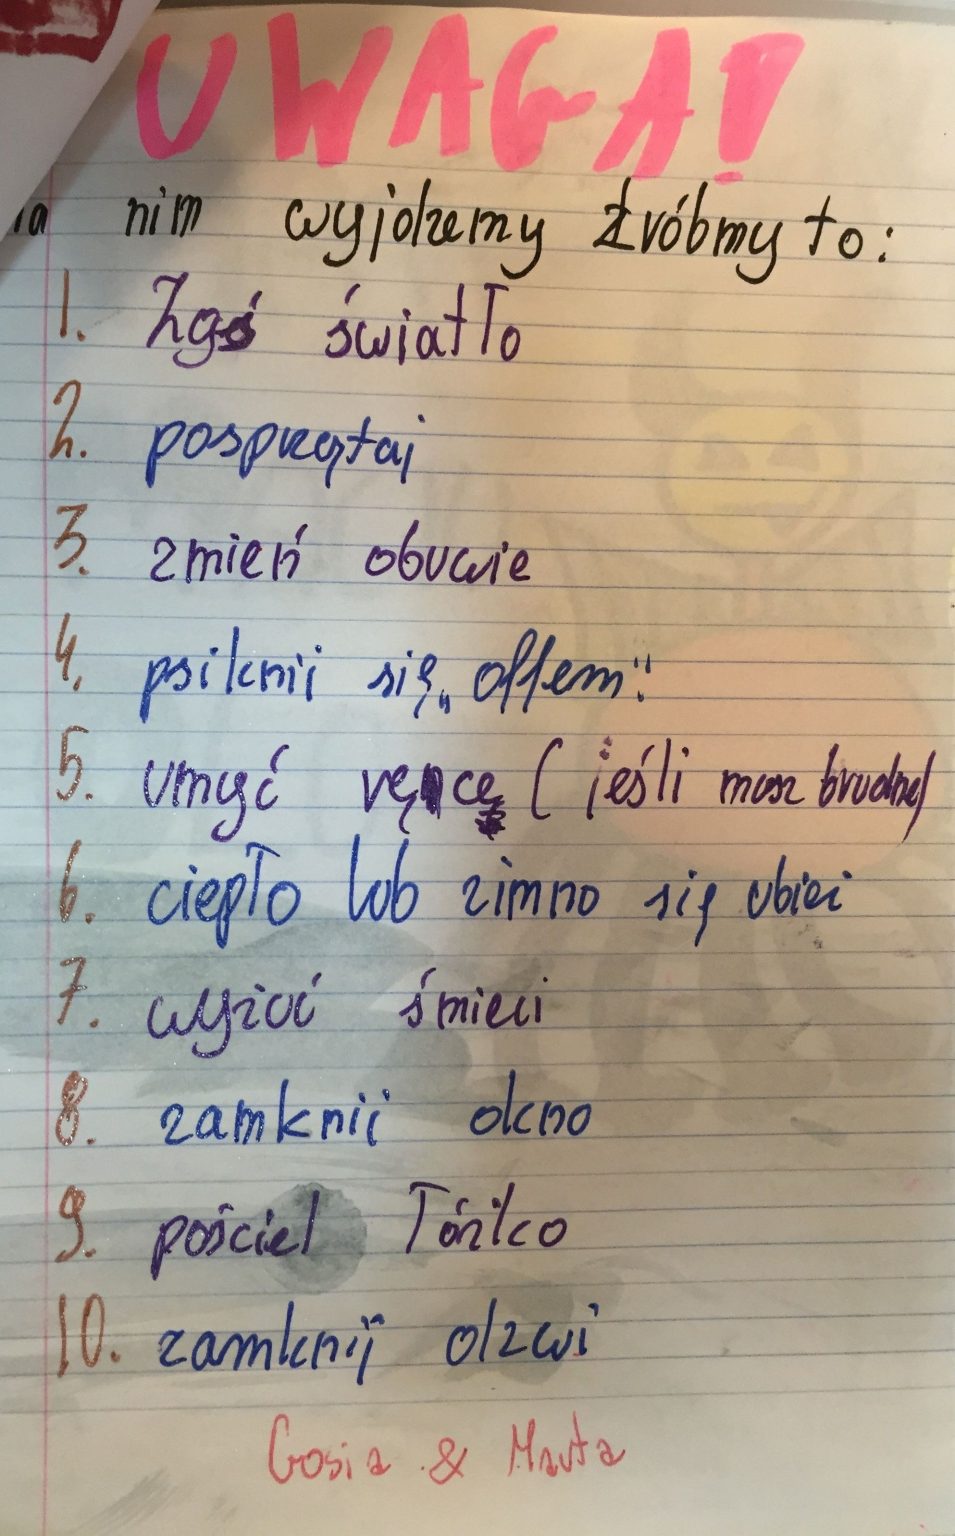 UWAGA!
nim wyjdziemy zróbmy to:
1. Zgś światło
2. posprzątaj
3. zmień obuwie
4. psiknij się „offem"
5. umyć ręce (jeśli masz brudne)
6. ciepło lub zimno się ubiei
7. wyżuć śmieci
8. zamknij okno
9. pościel łóżko
10. zamknij dzwi
Gosia & Marta